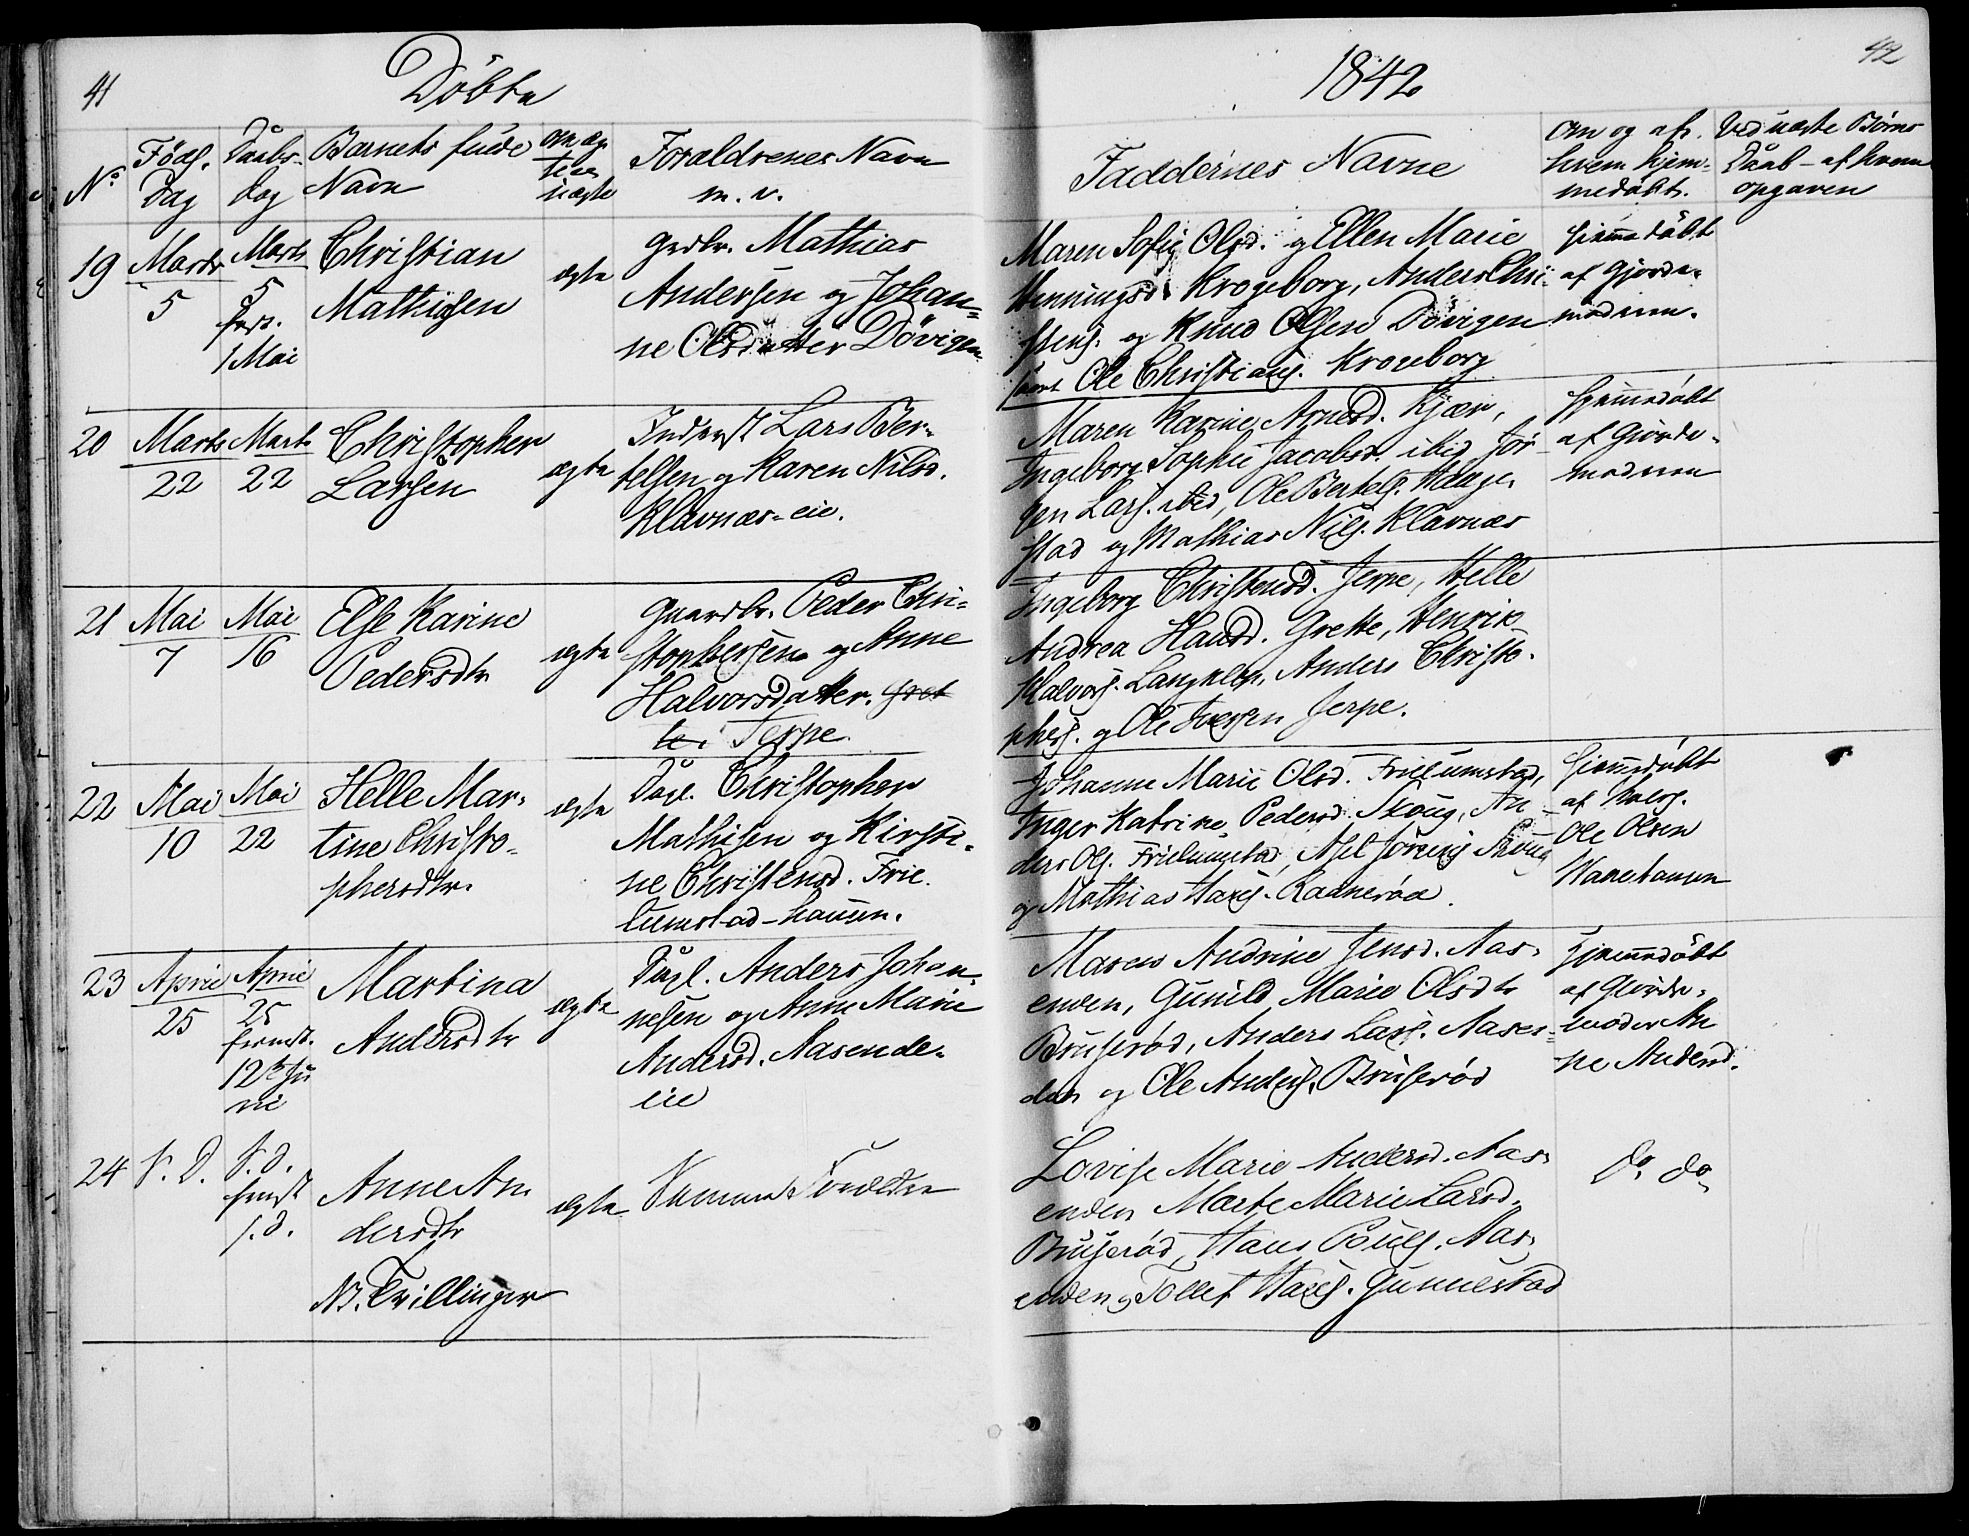 41
Döbte
1842
42
No
Föds.
Dag
Daabs-
dag
Barnets fulde
Navn
om æg-
te el
uægte
Forældrenes Navn
m. v.
Faddernes Navne
Om og af
hvem hjem-
medøbt.
Ved uægte Börns
Daab - af hvem
opgaven
19
Marts
5
Marts
5
1 Mai
Christian
Mathisen
ægte
Grdbr. Mathias
Andersen og Johan-
ne Olsdatter Dövigen
Maren Sofie Olsd. og Ellen Marie
Henningsd. Krogeborg, Anders Chri-
stens. og Knud Olsen Dövigen
samt Ole Christians. Krogeborg
hjemmedöbt
af Gjorde-
moderen.
20
Marts
22
Marts
22
Christopher
Larsen
ægte
Inderst Lars Ber-
telsen og Karen Nilsd.
Klavnæs-eie.
Maren Karine Arnesd. Kjær,
Ingeborg Sophie Jacobsd. ibid, Jör-
gen Lars. ibid, Ole Bertels. Hauge-
stad og Mathias Nils. Klavnæs
Hjemmedöbt
af Gjorde-
moderen
21
Mai
7
Mai
16
Else Karine
Pedersdtr
ægte
Gaardbr. Peder Chri-
stophersen og Anne
Halvorsdatter. Gret
te. Jerpe.
Ingeborg Christensd. Jerpe, Helle
Andrea Hansd. Grette, Henrik
Halvors. Langklep, Anders Christo-
phers. og Ole Iversen Jerpe.
22
Mai
10
Mai
22
Helle Mar-
tine Christo-
phersdtr.
ægte
Dagl. Christopher
Mathisen og Kirsti-
ne Christensd. Frie-
lumstad-haugen.
Johanne Marie Olsd. Frielumstad,
Inger Katrine Pedersd. Skoug, An-
ders Ols. Frielumstad, Axel Sörens. Skoug
og Mathias Hans. Rannerød.
hjemmedöbt
af
Ole Olsen
23
April
25
April
25
fremst.
12te Ju
ni
Martina
Andersdtr
ægte
Dagl. Anders Johan-
nesen og Anne Marie
Andersd. Aasende-
eie
Maren Andrine Jensd. Aas-
enden, Gunild Marie Olsdtr
Bruserød, Anders Lars. Aasen-
den og Ole Anders. Bruserød
Hjemmedöbt
af Gjorde-
moder An
ne Andersd.
24
S. D.
S. d.
fremst
s. d.
Anne An
dersdtr
NB. Tvillinger
ægte
Samme Forældre
Lovise Marie Andersd. Aas-
enden Marte Marie Larsd.
Bruserød, Hans Pouls. Aas-
enden og Tollef Hans. Gunnestad
do do